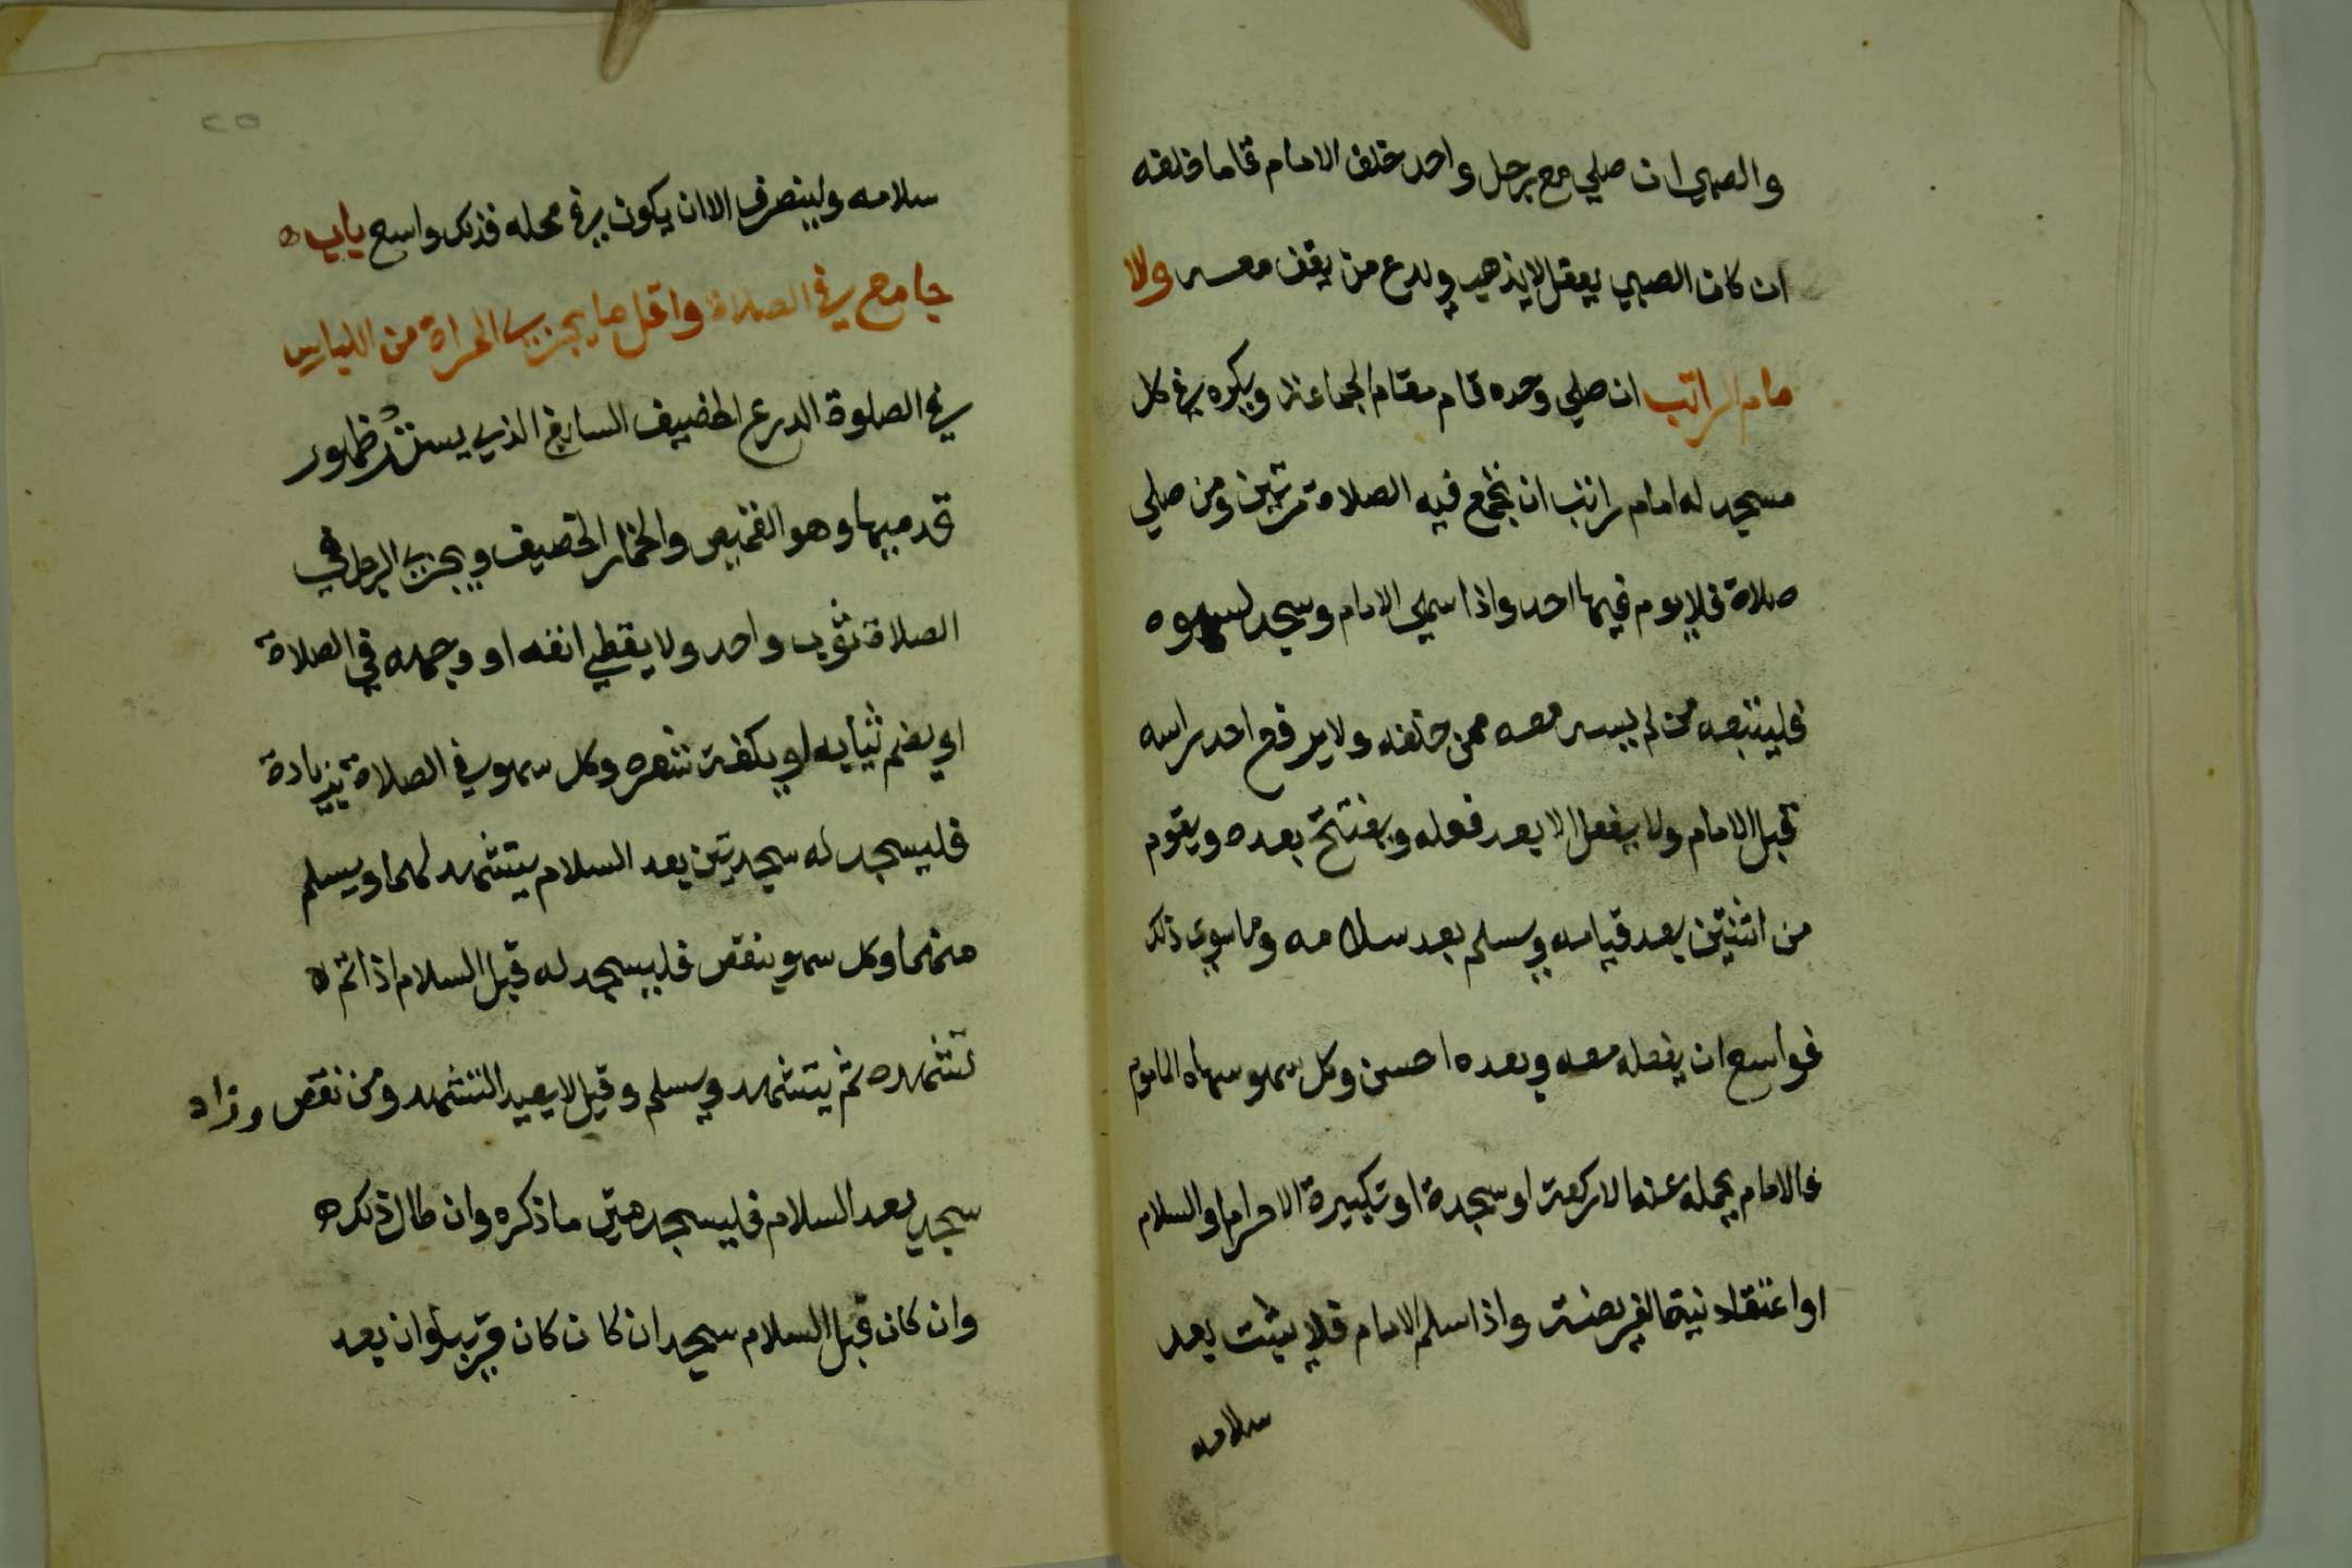 والصبي ان صلي مع رجل واحد خلف الامام قاما خلفه
ان كان الصبي يعقل لا يذهب ويدع من يقف معه والا
مام الراتب ان صلي وحده قام مقام الجماعة ويكره في كل
مسجد له امام راتب ان تجمع فيه الصلاة مرتين ومن صلي
صلاة فلا يوم فيها احد واذا سهي الامام وسجد لسهوه
فليتبعه من لم يسه معه ممن خلفه ولا يرفع احد راسه
قبل الامام ولا يفعل الا بعد فعله ويفتتح بعده ويقوم
من اثنتين بعد قيامه ويسلم بعد سلامه وما سوي ذلك
فواسع ان يفعله معه وبعده احسن وكل سهو سهاه الماموم
فالامام يحمله عنه الا ركعة او سجدة او تكبيرة الاحرام او السلام
او اعتقاد نية الفريضة واذا سلم الامام فلا يثبت بعد
سلامه
٢٥
سلامه ولينصرف الا ان يكون في محله فذلك واسع باب ه
جامع في الصلاة واقل ما يجزي المراة من اللباس
في الصلوة الدرع الخصيف السابغ الذي يستر ظهور
قدميها وهو القميص والخمار الخصيف ويجزي الرجل في
الصلاة ثوب واحد ولا يغطي انفه او وجهه في الصلاة
او يضم ثيابه او يكفت شعره وكل سهو في الصلاة بزيادة
فليسجد له سجدتين بعد السلام يتشهد لهما ويسلم
منهما وكل سهو ينقص فليسجد له قبل السلام اذا تم ه
تشهده ثم يتشهد ويسلم وقيل لا يعيد التشهد ومن نقص وزاد
سجد بعد السلام فليسجد متى ما ذكره وان طال ذلك ه
وان كان قبل السلام سجد ان كان كان قريبا وان بعد